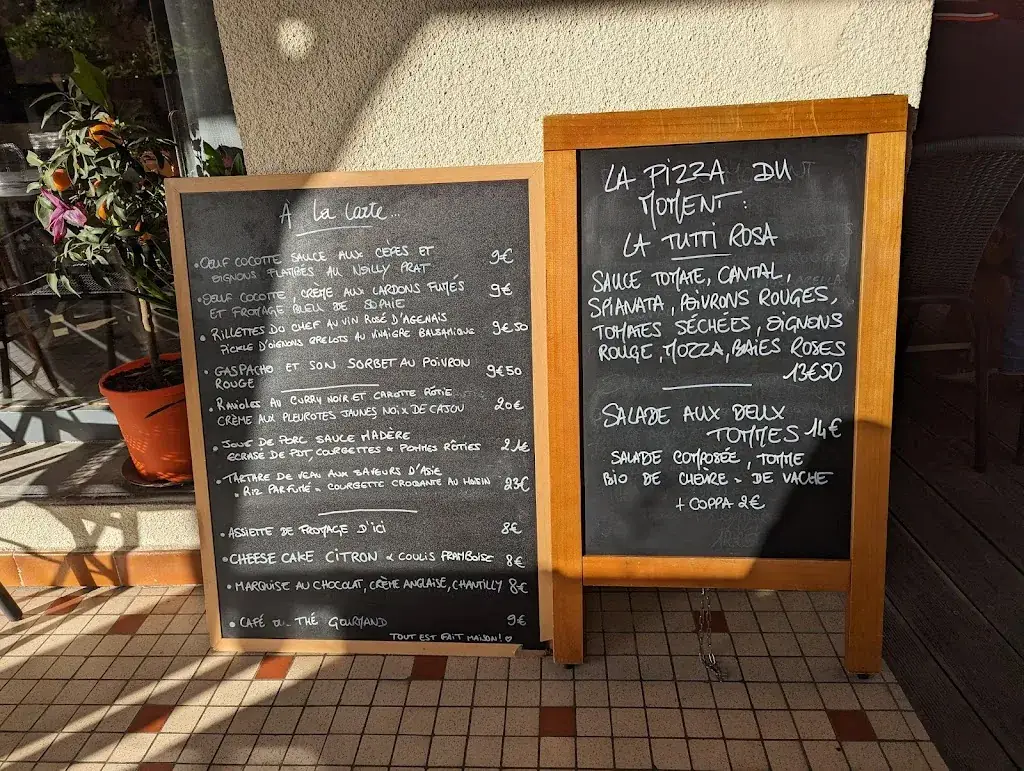 À La Carte...
• OEUF COCOTTE SAUCE AUX CÈPES ET 9€
OIGNONS FLAMBÉS AU NOILLY PRAT
• OEUF COCOTTE, CRÈME AUX LARDONS FUMÉS 9€
ET FROMAGE BLEU DE SOPHIE
• RILLETTES DU CHEF AU VIN ROSÉ D'AGENAIS 9€50
PICKLE D'OIGNONS GRELOTS AU VINAIGRE BALSAMIQUE
• GASPACHO ET SON SORBET AU POIVRON 9€50
ROUGE
• RAVIOLES AU CURRY NOIR ET CAROTTE RÔTIE 20€
CRÈME AUX PLEUROTES JAUNES NOIX DE CAJOU
• JOUE DE PORC SAUCE MADÈRE 21€
ECRASÉ DE PDT, COURGETTES & POMMES RÔTIES
• TARTARE DE VEAU AUX SAVEURS D'ASIE 23€
• RIZ PARFUMÉ - COURGETTE CROQUANTE AU HOISIN
• ASSIETTE DE FROMAGE D'ICI 8€
• CHEESE CAKE CITRON & COULIS FRAMBOISE 8€
• MARQUISE AU CHOCOLAT, CRÈME ANGLAISE, CHANTILLY 8€
• CAFÉ OU THÉ GOURMAND 9€
TOUT EST FAIT MAISON! ♡
LA PIZZA DU
MOMENT :
LA TUTTI ROSA
SAUCE TOMATE, CANTAL,
SPIANATA, POIVRONS ROUGES,
TOMATES SÉCHÉES, OIGNONS
ROUGE, MOZZA, BAIES ROSES
13€50
SALADE AUX DEUX
TOMMES 14€
SALADE COMPOSÉE, TOMME
BIO DE CHÈVRE & DE VACHE
+ COPPA 2€